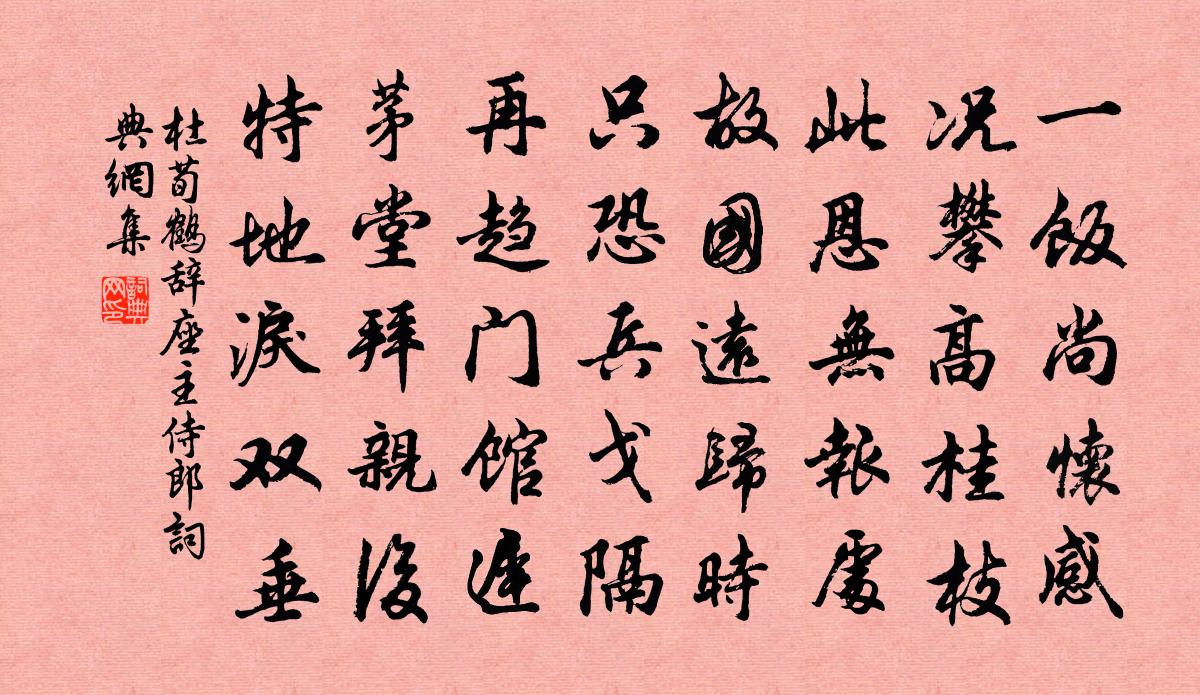 一飯尚懷感
況攀高桂枝
此恩無報處
故國遠歸時
只恐兵戈隔
再趋门館遲
茅堂拜親後
特地淚双垂
杜荀鶴辞座主侍郎詞
典網集
詞典网印